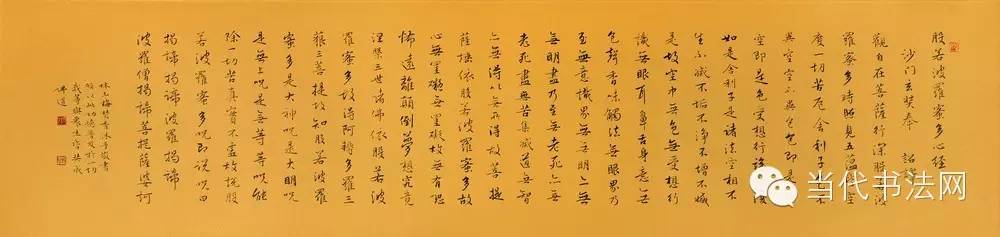 般若波羅蜜多心經
沙门玄奘奉 詔譯
觀自在菩薩行深般若波
羅蜜多時照見五蘊皆空
度一切苦厄舍利子色不
異空空不異色色即是
空即是色受想行識
如是舍利子是諸法空相不
生不滅不垢不淨不增不減
是故空中無色無受想行
識無眼耳鼻舌身意無
色聲香味觸法無眼界乃
至無意識界無無明亦無
無明盡乃至無老死亦無
老死盡無苦集滅道無智
亦無得以無所得故菩提
薩埵依般若波羅蜜多故
心無罣礙無罣礙故無有恐
怖遠離顛倒夢想究竟
涅槃三世諸佛依般若波
羅蜜多故得阿耨多羅三
藐三菩提故知般若波羅
蜜多是大神呪是大明呪
是無上呪是無等等呪能
除一切苦真實不虛故說般
若波羅蜜多呪即說呪曰
揭諦揭諦波羅揭諦
波羅僧揭諦菩提薩婆訶
敬書
願以此功德普及於一切
我等與眾生皆共成
佛道
当代书法网